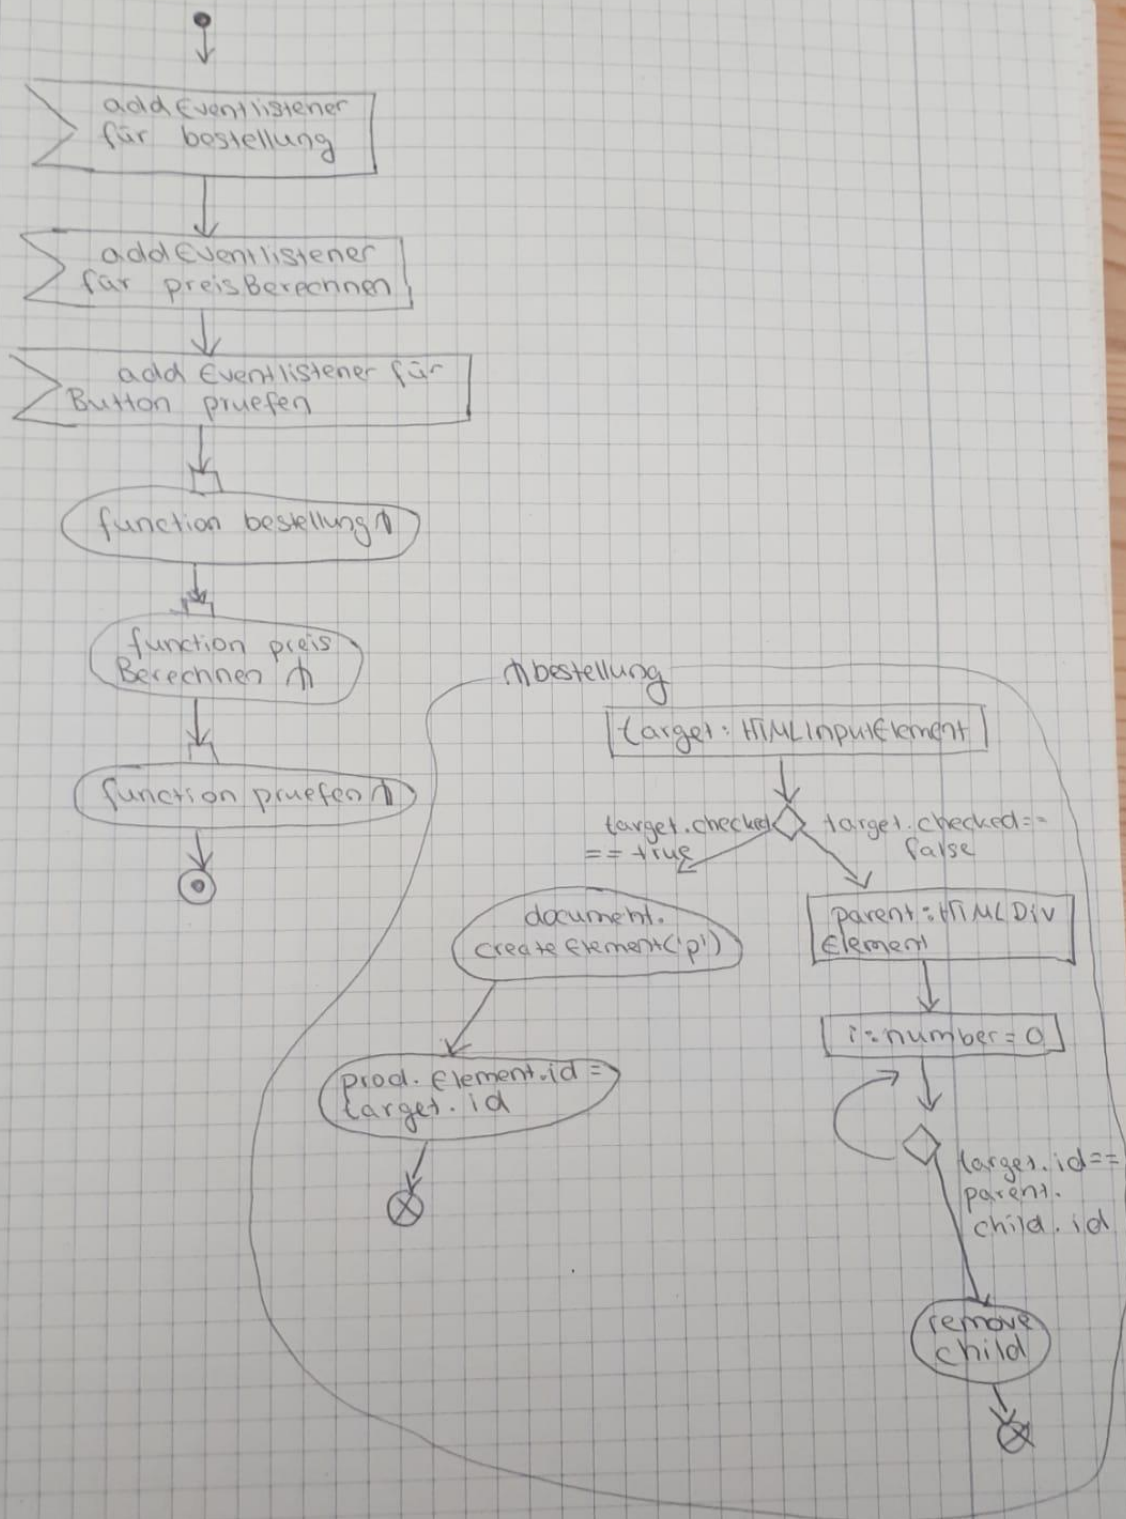 addEventlistener
für bestellung
addEventlistener
für preisBerechnen
add Eventlistener für
Button pruefen
function bestellung
function preis
Berechnen
function pruefen
bestellung
target: HTMLInputElement
target.checked
== true
target.checked==
false
document.
createElement('p')
parent: HTMLDiv
Element
i:number=0
prod.Element.id =
target.id
target.id==
parent.
child.id
remove
child